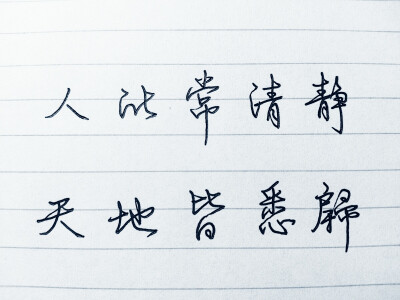 人能常清静
天地皆悉歸